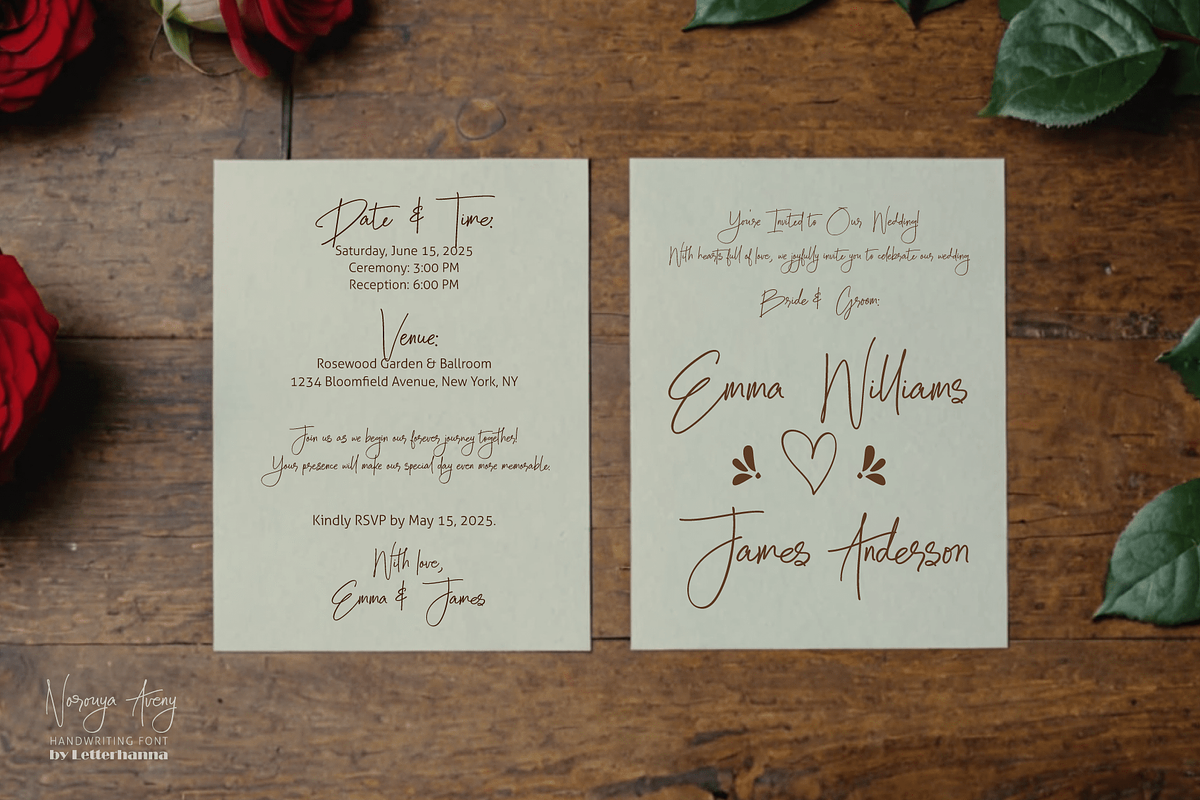 Date & Time:
Saturday, June 15, 2025
Ceremony: 3:00 PM
Reception: 6:00 PM
Venue:
Rosewood Garden & Ballroom
1234 Bloomfield Avenue, New York, NY
Join us as we begin our forever journey together!
Your presence will make our special day even more memorable.
Kindly RSVP by May 15, 2025.
With love,
Emma & James
You're Invited to Our Wedding!
With hearts full of love, we joyfully invite you to celebrate our wedding
Bride & Groom:
Emma Williams
James Andersson
Norouya Aveny
HANDWRITING FONT
by Letterhanna